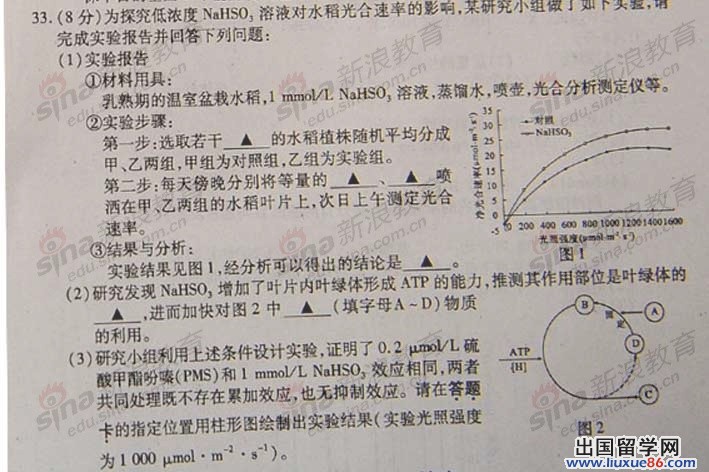 33.(8分)为探究低浓度 NaHSO₃ 溶液对水稻光合速率的影响,某研究小组做了如下实验,请
完成实验报告并回答下列问题:
(1)实验报告
①材料用具:
乳熟期的温室盆栽水稻,1 mmol/L NaHSO₃ 溶液,蒸馏水,喷壶,光合分析测定仪等。
②实验步骤:
第一步:选取若干 ▲ 的水稻植株随机平均分成
甲、乙两组,甲组为对照组,乙组为实验组。
第二步:每天傍晚分别将等量的 ▲ 、 ▲ 喷
洒在甲、乙两组的水稻叶片上,次日上午测定光合
速率。
③结果与分析:
实验结果见图1,经分析可以得出的结论是 ▲ 。
(2)研究发现 NaHSO₃ 增加了叶片内叶绿体形成 ATP 的能力,推测其作用部位是叶绿体的
▲ ,进而加快对图 2 中 ▲ (填字母 A~D)物质
的利用。
(3)研究小组利用上述条件设计实验,证明了 0.2 μmol/L 硫
酸甲酯吩嗪(PMS)和 1 mmol/L NaHSO₃ 效应相同,两者
共同处理既不存在累加效应,也无抑制效应。请在答题
卡的指定位置用柱形图绘制出实验结果(实验光照强度
为 1 000 μmol·m⁻²·s⁻¹)。
净光合速率(μmol·m⁻²·s⁻¹)
35
30
25
20
15
10
5
0
-5
对照
NaHSO₃
0 200 400 600 800 1000 1200 1400 1600
光照强度(μmol·m⁻²·s⁻¹)
图1
ATP
[H]
B
固定
A
D
C
图2
sina 新浪教育
edu.sina.com.cn
出国留学网
www.liuxue86.com